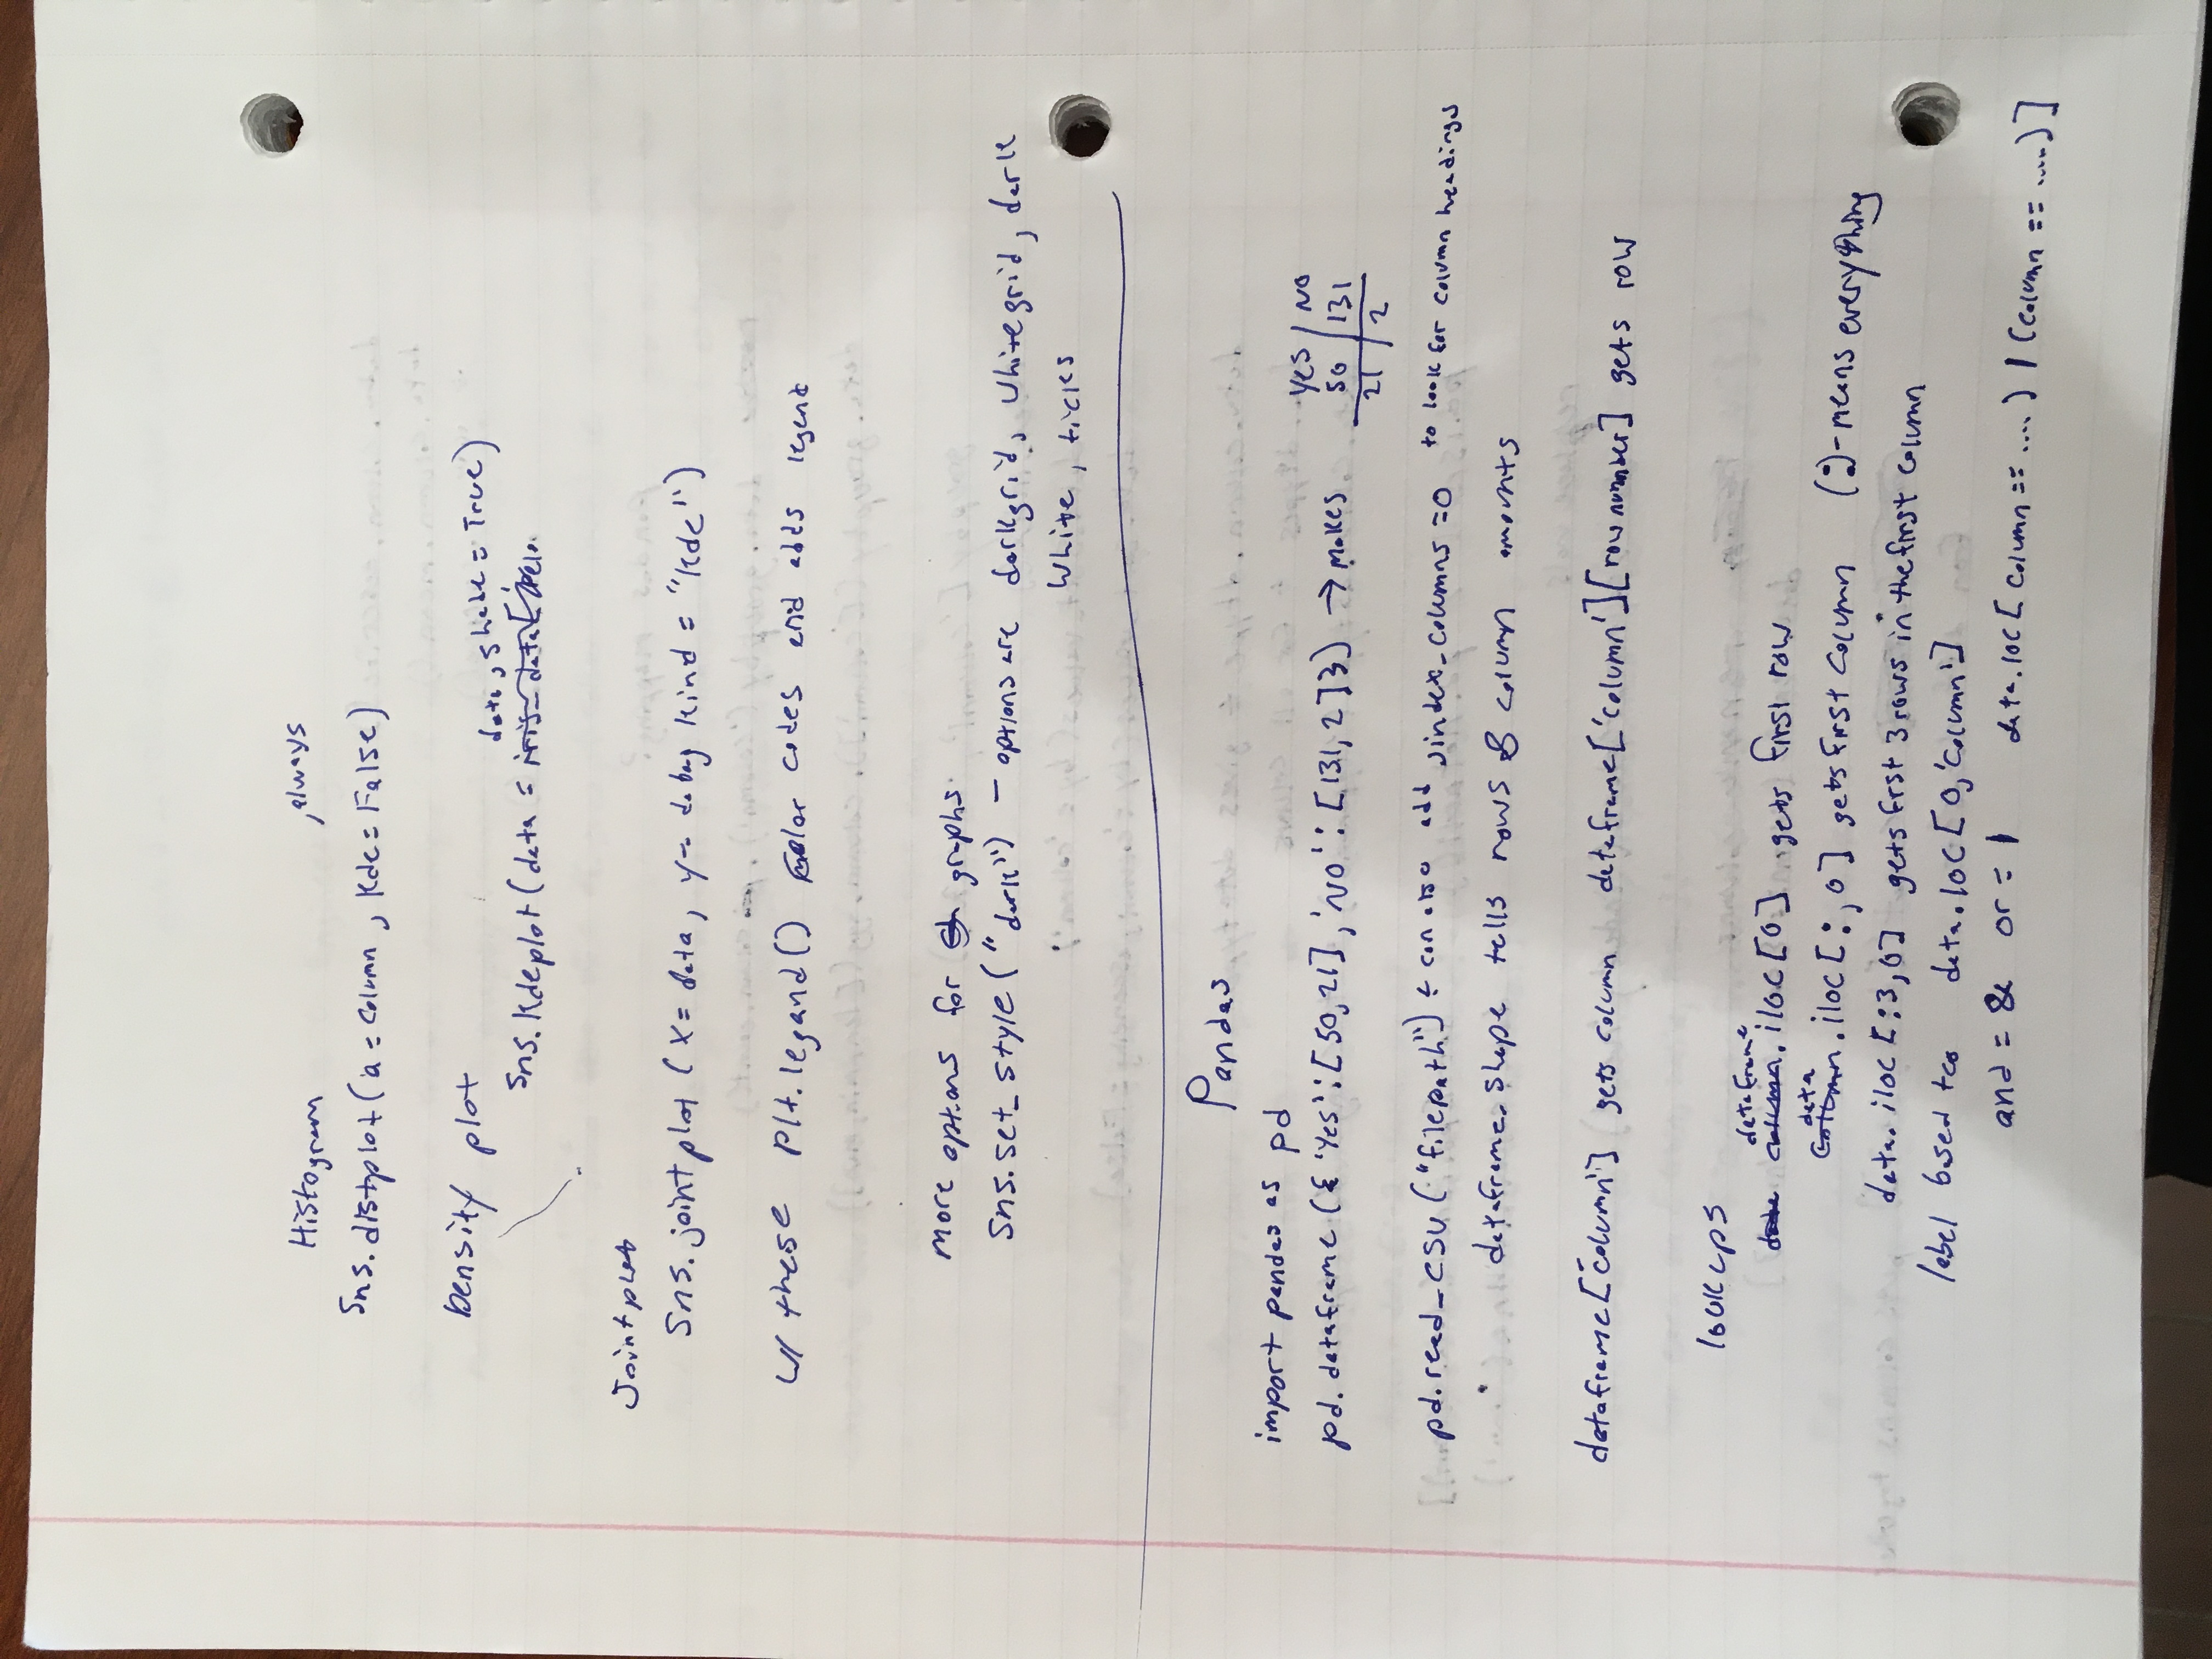 Histogram ,always
Sns.distplot(a = Column, Kde = False)
Density plot
data, shade = True)
Sns.Kdeplot(data =
Jointplot
Sns.jointplot (X= data, y= kind = "Kde")
w/ these plt.legand() color codes and adds legend
more options for graphs
Sns.set_style("dark") - options are darkgrid, Whitegrid, dark
White, ticks
Pandas
import pandas as pd
pd.dataframe ({'Yes':[50,21],'No':[131,2]}) → makes
Yes | No
50 | 131
21 | 2
pd.read_csv("filepath") ← can also add ,index_columns =0 to look for column headings
dataframe.shape tells rows & column amounts
dataframe['column'] gets column dataframe['column'][row number] gets row
lookups
dataframe
.iloc[0] gets first row
data
.iloc[:,0] gets first column (:)-means everything
data.iloc[:3,0] gets first 3 rows in the first column
label based too data.loc[0,'Column']
and = & or = | data.loc[Column == ....) | (column == ....)]